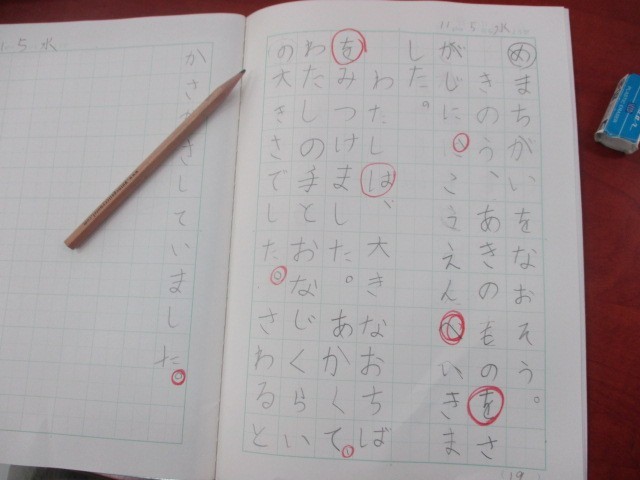 11.5 水
めまちがいをなおそう。
きのう、あきのものをさ
がしに、こうえんへいきま
した。
わたしは、大きなおちば
をみつけました。あかくて、
わたしの手とおなじくらい
の大きさでした。さわると
1.5 水
かさかさしていました。